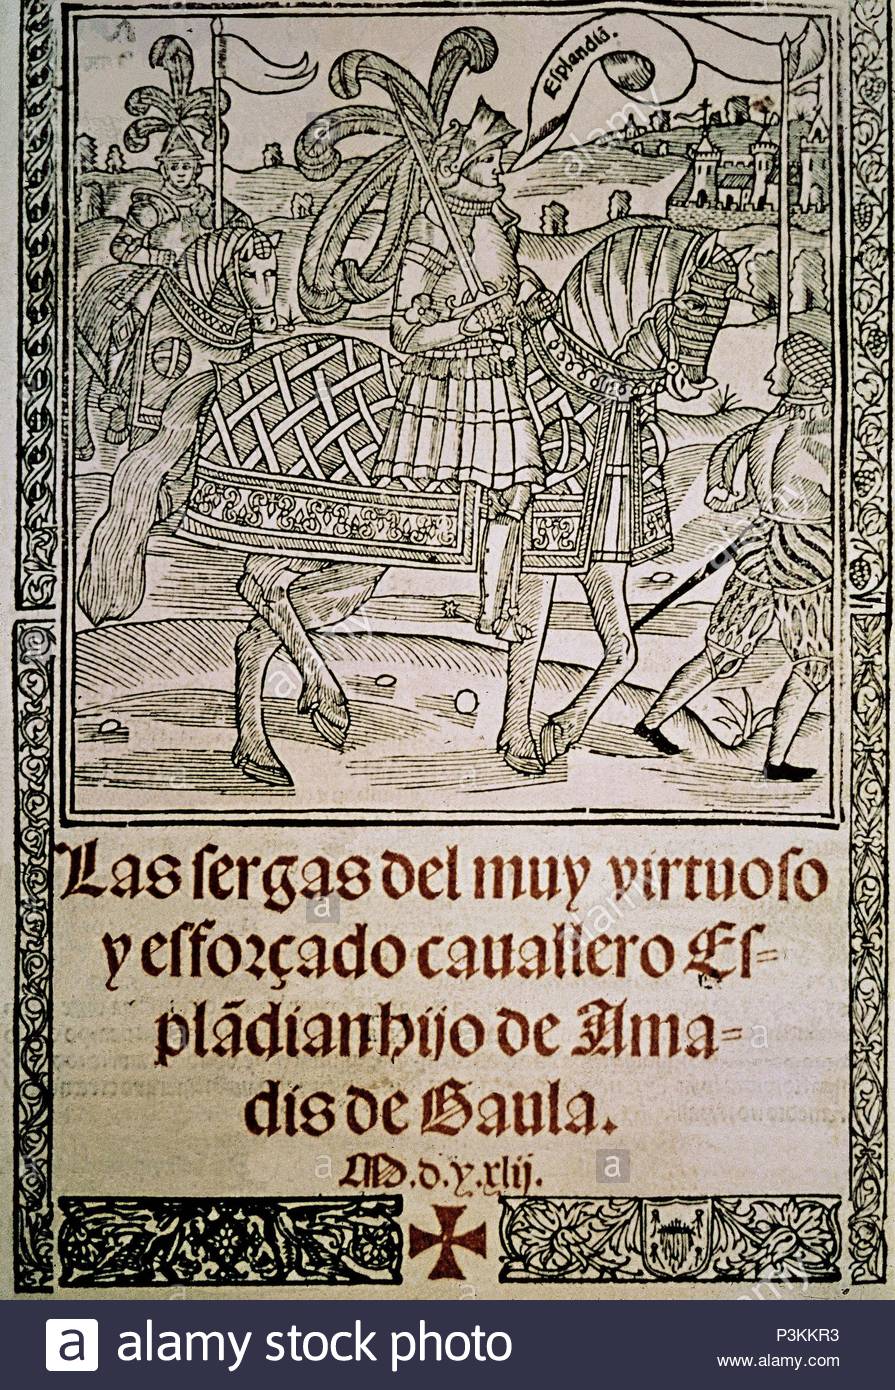 Esplandiã.
Las sergas del muy virtuoso
y esforçado cauallero Es=
plãdian hijo de Ama=
dis de Gaula.
M.d.y.xlij.
alamy stock photo
P3KKR3
www.alamy.com